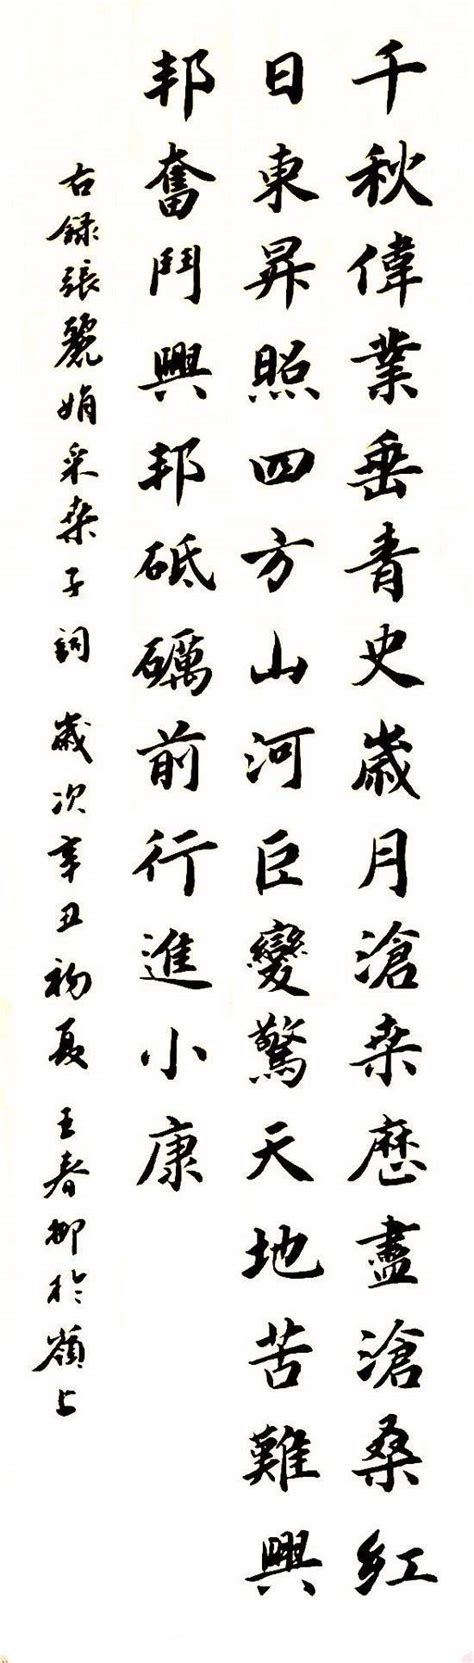 千秋偉業垂青史歲月滄桒歷盡滄桑紅
日東昇照四方山河巨變驚天地苦難興
邦奮鬥興邦砥礪前行進小康
右錄張麗娟采桒子詞 歲次辛丑初夏 王春柳於嶺上